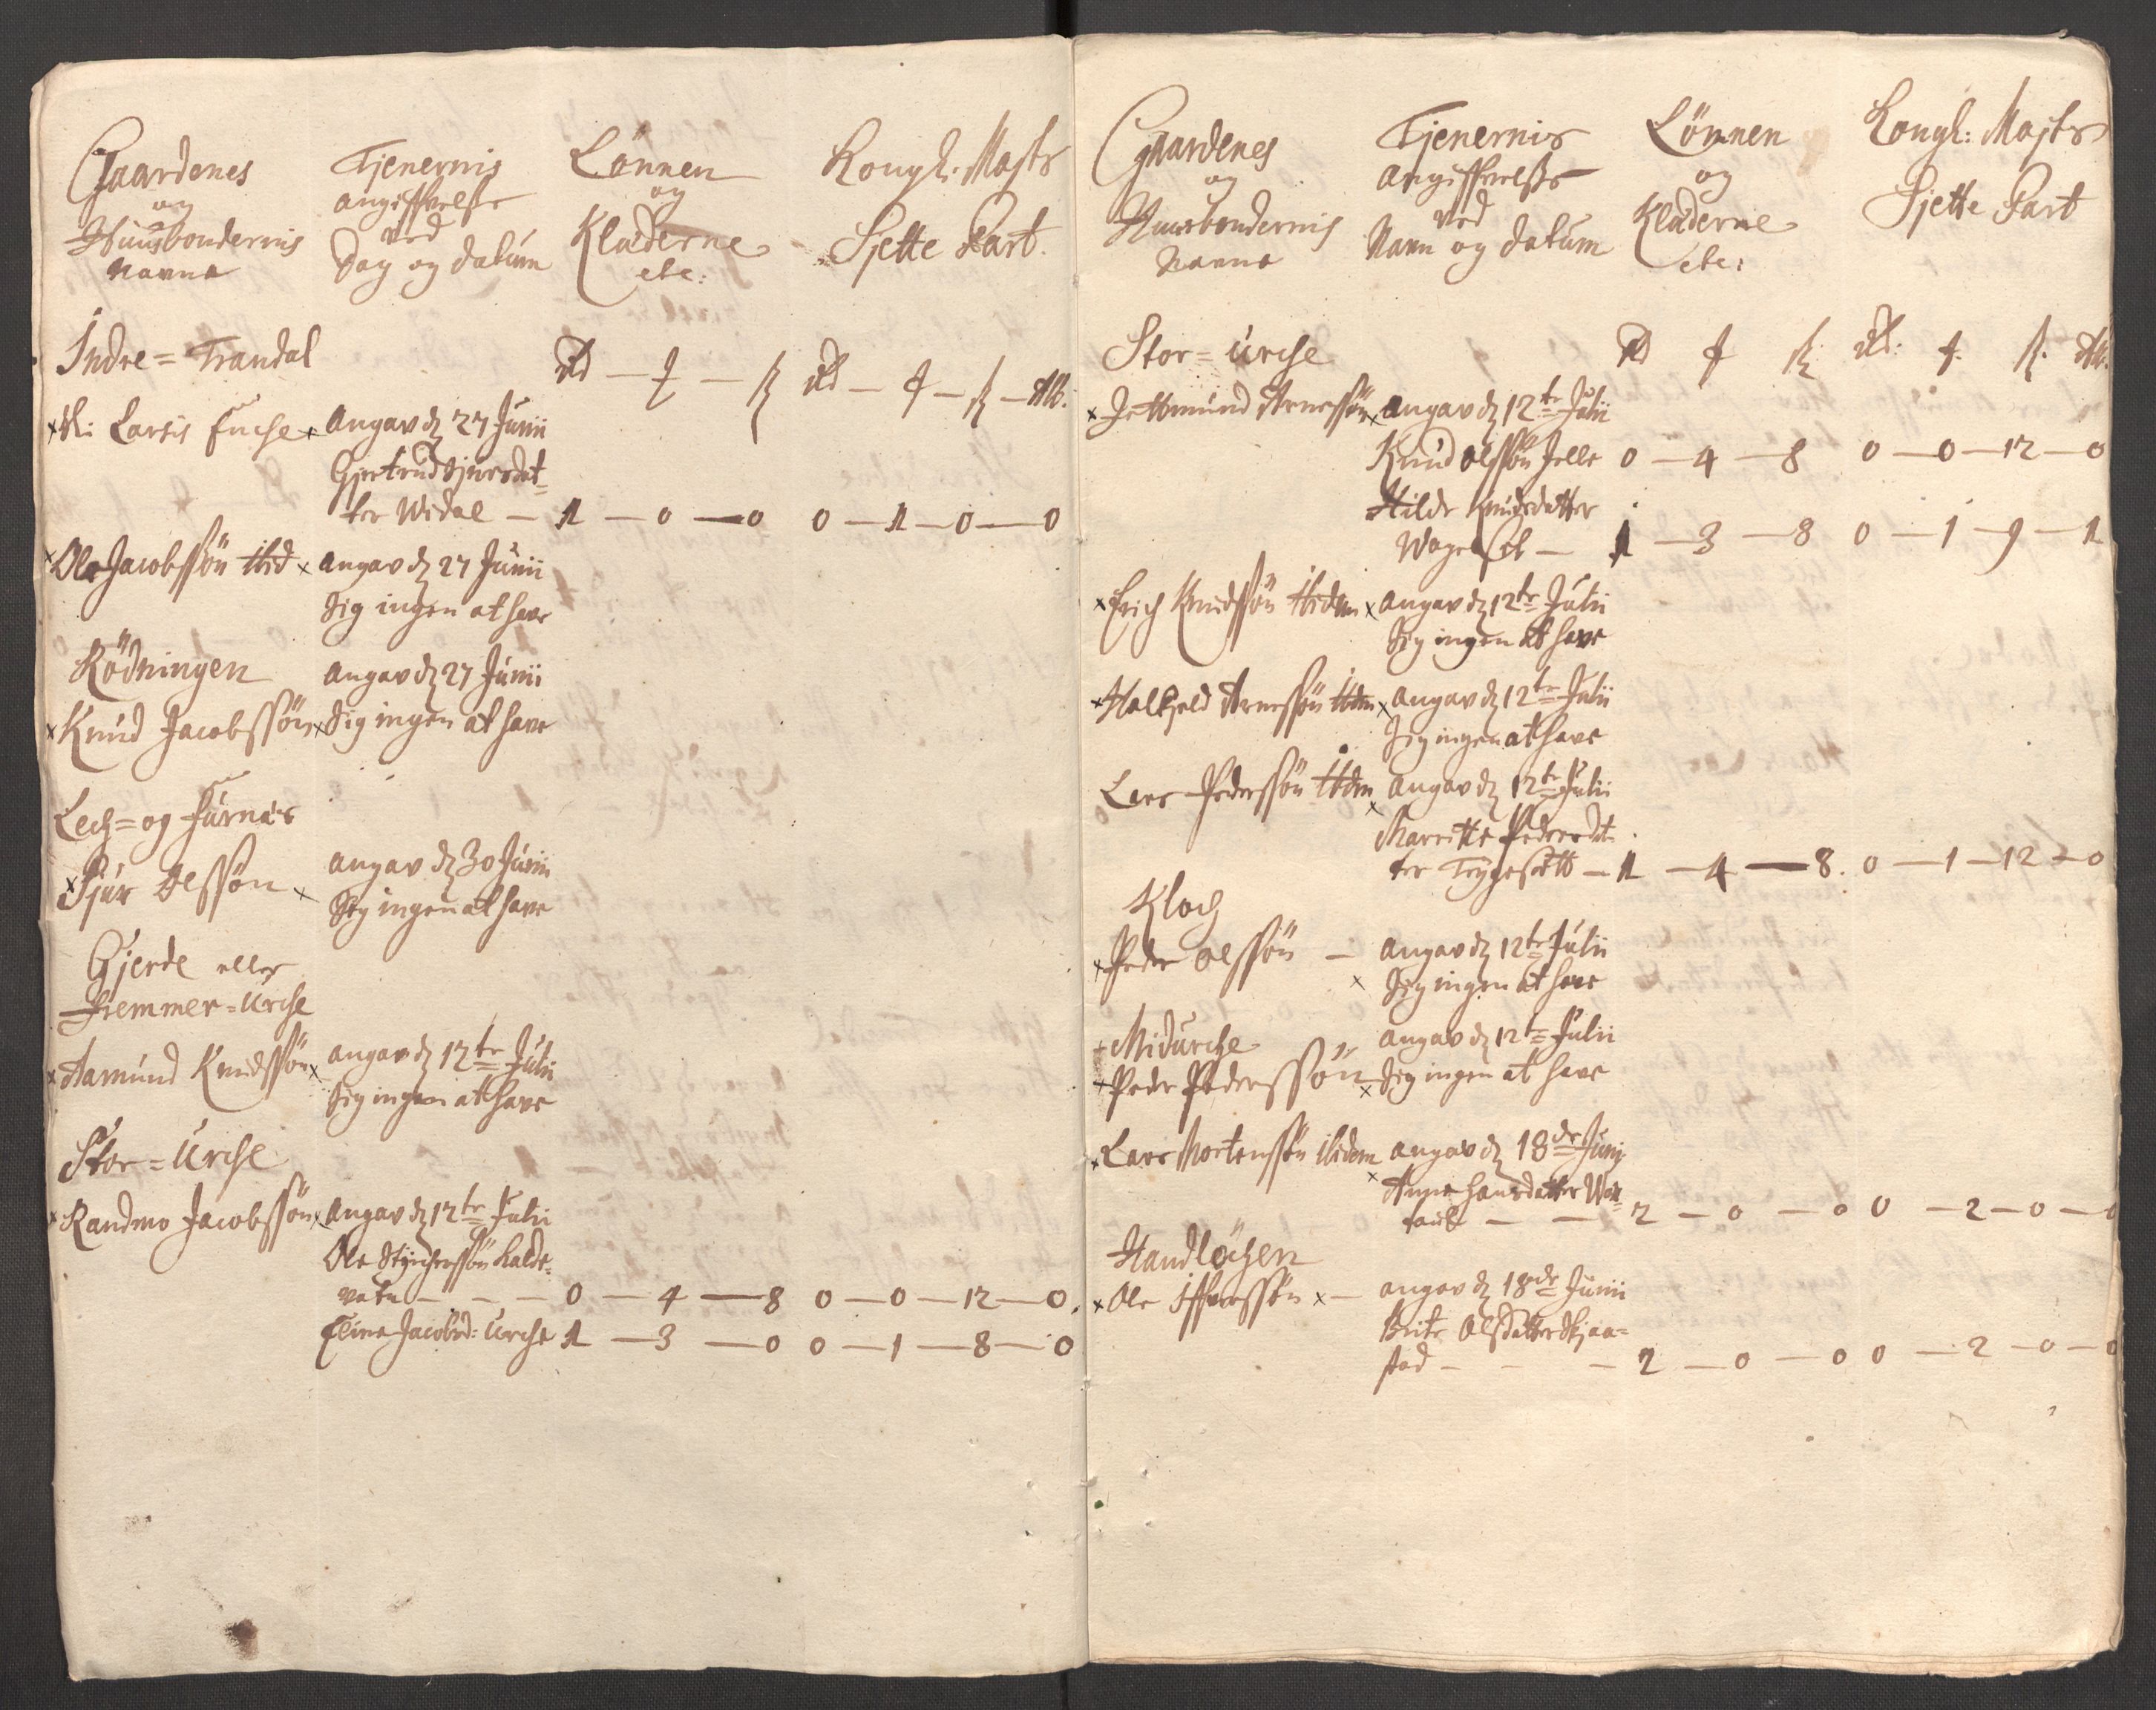 Gaardenes
og
Huusbondernis
Navne
Tjenernis
angiffvelse
ved
Dag og datum
Lönnen
og
Klæderne
etc:
Kongl. Majts
Sjette Part.
Indre=Trandal
Rd — ₰ — ß Rd — ₰ — ß — Alb.
Sl: Larsis Enche angav d 27 Junii
Gjertrud Sjursdat=
ter Widal — 1 — 0 — 0 0 — 1 — 0 — 0
Ole Jacobssön Ibid angav d 27 Junii
Sig ingen at have
Rödningen angav d 27 Junii
Knud Jacobssön Sig ingen at have
Lech= og Furnæs
Sjur Olssön angav d 30 Junii
Sig ingen at have
Gjerde eller
Fremmer=Urche
Aamund Knudssön angav d 12te Julii
Sig ingen at have
Stor=Urche
Randmo Jacobssön angav d 12te Julii
Ole Kalde=
vatn — — — 0 — 4 — 8 0 — 0 — 12 — 0.
Elina Jacobsd: Urche 1 — 3 — 0 0 — 1 — 8 — 0
Gaardenes
og
Huusbondernis
Navne
Tjenernis
Angiffvelse
ved
Navn og datum
Lönnen
og
Klæderne
etc:
Kongl: Majts
Sjette Part
Stor=Urche Rd ₰ ß Rd: ₰. ß. Alb.
Jettmund Arnessön angav d 12te Julii
Knud Olssön Jelle 0 — 4 — 8 0 — 0 — 12 — 0
Hilde Knudsdatter
— 1 — 3 — 8 0 — 1 — 9 — 1
Erich Knudssön Ibidm angav d 12te Julii
Sig ingen at have
Halkjeld Arnessön Ibdm angav d 12te Julii
Sig ingen at have
Lars Pederssön Ibdm angav d 12te Julii
Marritte Pedersdt=
ter — 1 — 4 — 8. 0 — 1 — 12 — 0
Kloch
Peder Olssön — angav d 12te Julii
Sig ingen at have
Midurche angav d 12te Julii
Peder Pederssön Sig ingen at have
Lars Mortenssön Ibidem angav d 18de Junij
Anne Hansdatter
— — 2 — 0 — 0 0 — 2 — 0 — 0
Handlöchen
Ole Iffverssön — angav d 18de Junii
Brite Olsdatter Skjaa=
stad — — 2 — 0 — 0 0 — 2 — 0 — 0